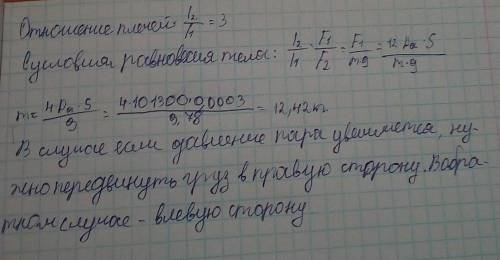 Отношение плечей: l₂/l₁ = 3
Из условия равновесия тела: l₂/l₁ = F₁/F₂ = F₁/m·g = 12·Pa·S/m·g
m = 4Pa·S/g = 4·101300·0,0003/9,78 = 12,42 кг.
В случае если давление пара увеличится, ну-
жно передвинуть груз в правую сторону. В обра-
тном случае - в левую сторону